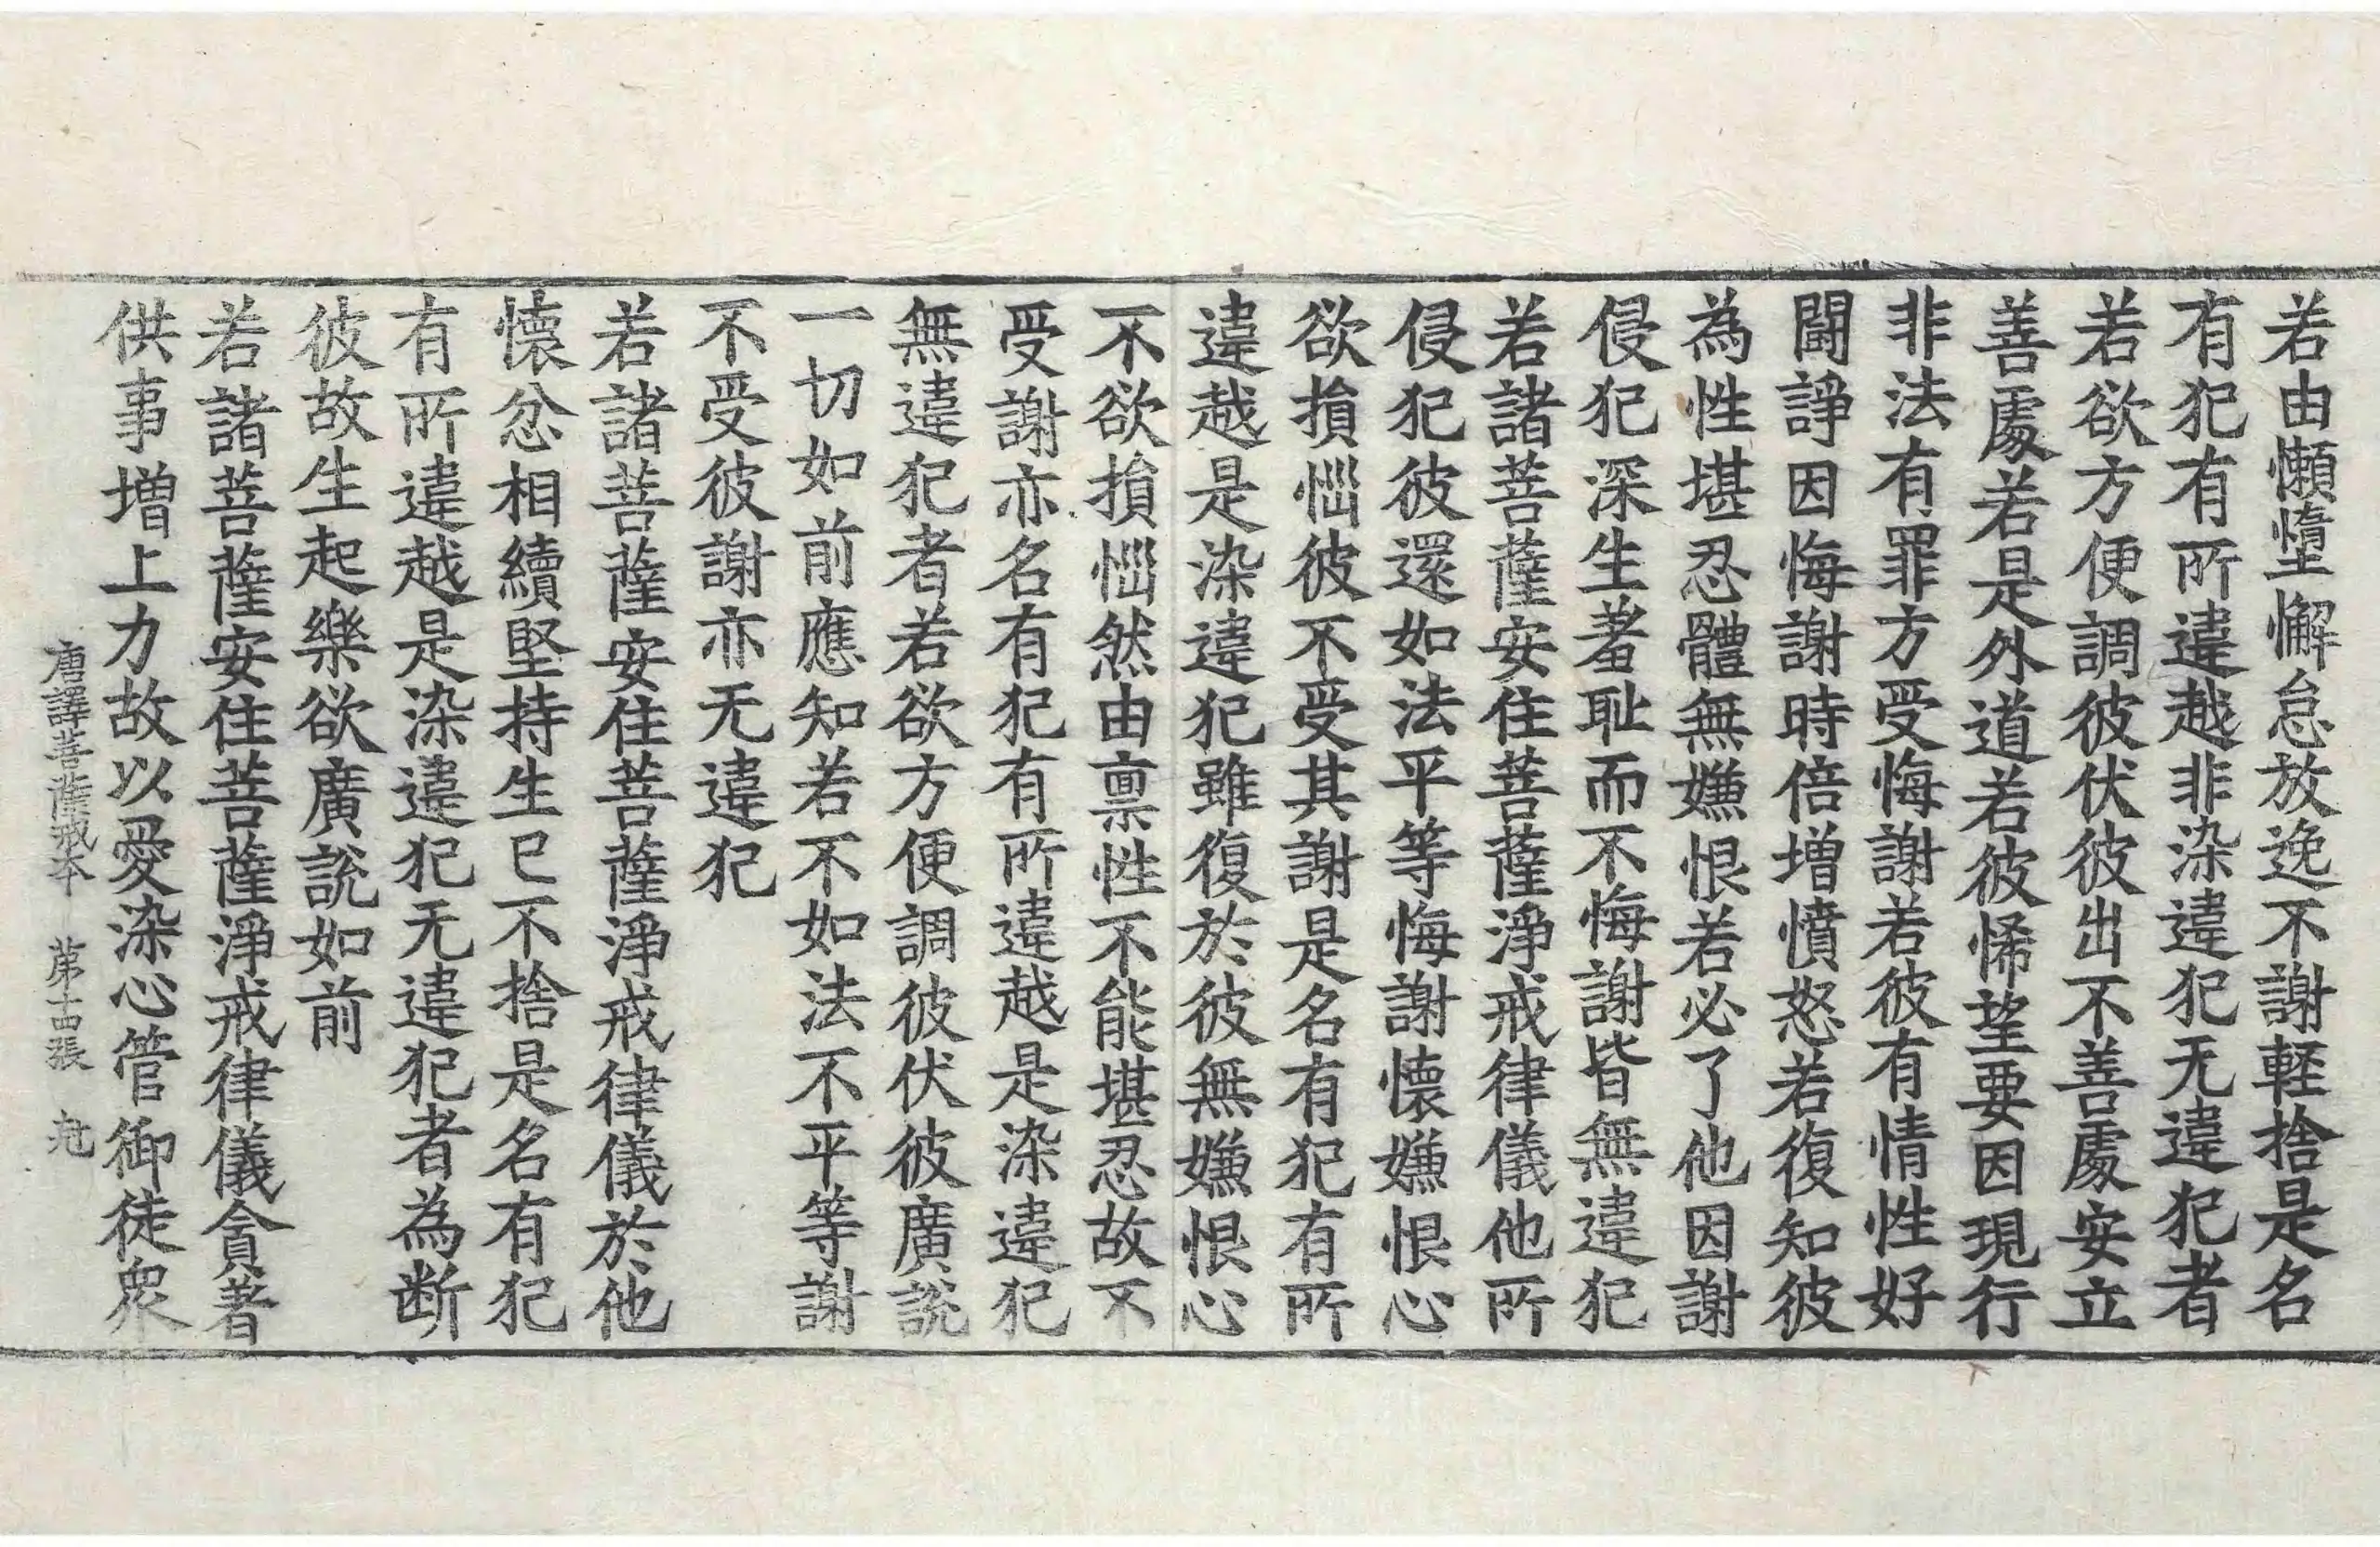 若由懶墮懈怠放逸不謝輕捨是名
有犯有所違越非染違犯无違犯者
若欲方便調彼伏彼出不善處安立
善處若是外道若彼悕望要因現行
非法有罪方受悔謝若彼有情性好
鬪諍因悔謝時倍增憤怒若復知彼
為性堪忍體無嫌恨若必了他因謝
侵犯深生羞耻而不悔謝皆無違犯
若諸菩薩安住菩薩淨戒律儀他所
侵犯彼還如法平等悔謝懷嫌恨心
欲損惱彼不受其謝是名有犯有所
違越是染違犯雖復於彼無嫌恨心
不欲損惱然由禀性不能堪忍故不
受謝亦名有犯有所違越是染違犯
無違犯者若欲方便調彼伏彼廣說
一切如前應知若不如法不平等謝
不受彼謝亦无違犯
若諸菩薩安住菩薩淨戒律儀於他
懷忿相續堅持生已不捨是名有犯
有所違越是染違犯无違犯者為断
彼故生起樂欲廣說如前
若諸菩薩安住菩薩淨戒律儀貪著
供事增上力故以愛染心管御徒衆
唐譯菩薩戒本 第十四張